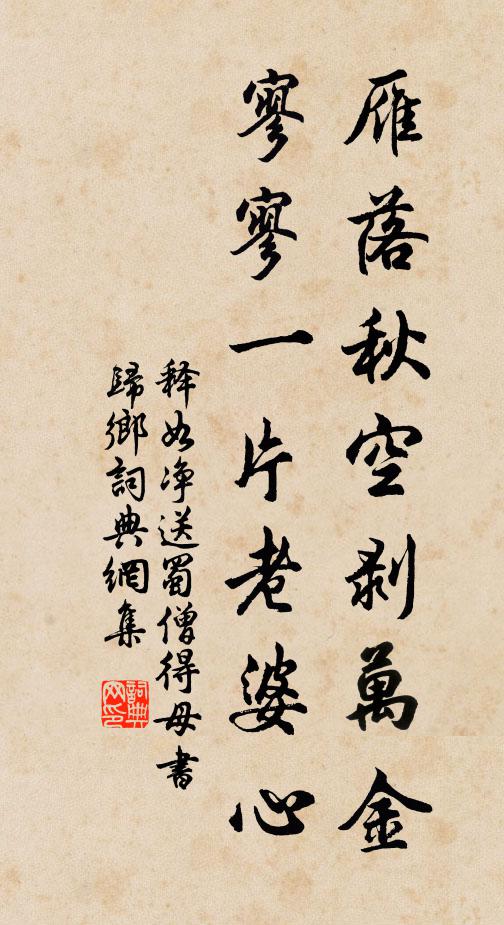 雁落秋空剥萬金
寥寥一片老婆心
释如净送蜀僧得母書
歸鄉詞典網集
詞典网印